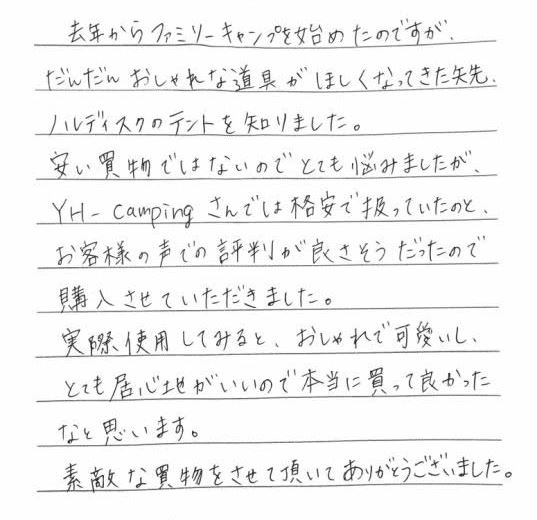 去年からファミリーキャンプを始めたのですが、
だんだんおしゃれな道具がほしくなってきた矢先、
ハルディスクのテントを知りました。
安い買物ではないのでとても悩みましたが、
YH-campingさんでは格安で扱っていたのと、
お客様の声での評判が良さそうだったので
購入させていただきました。
実際使用してみると、おしゃれで可愛いし、
とても居心地がいいので本当に買って良かった
なと思います。
素敵な買物をさせて頂いてありがとうございました。